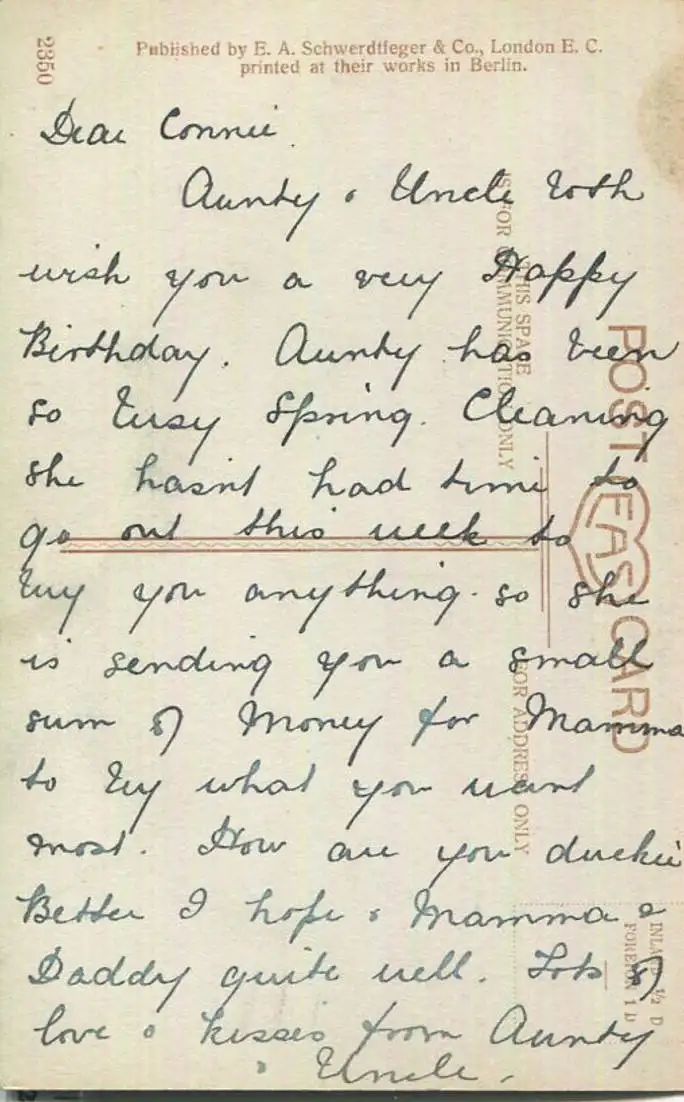 2350
Published by E. A. Schwerdtfeger & Co., London E. C.
printed at their works in Berlin.
Dear Connie
Aunty & Uncle both
wish you a very Happy
Birthday. Aunty has been
so busy Spring. Cleaning
she hasnt had time to
go out this week to
buy you anything. so she
is sending you a small
sum of Money for Mamma
to by what you want
most. How are you duckie
Better I hope & Mamma &
Daddy quite well. Lots of
love & kisses from Aunty
& Uncle.
THIS SPACE
IS FOR COMMUNICATION ONLY
POST CARD
EAS
FOR ADDRESS ONLY
INLAND ½ D
FOREIGN 1 D